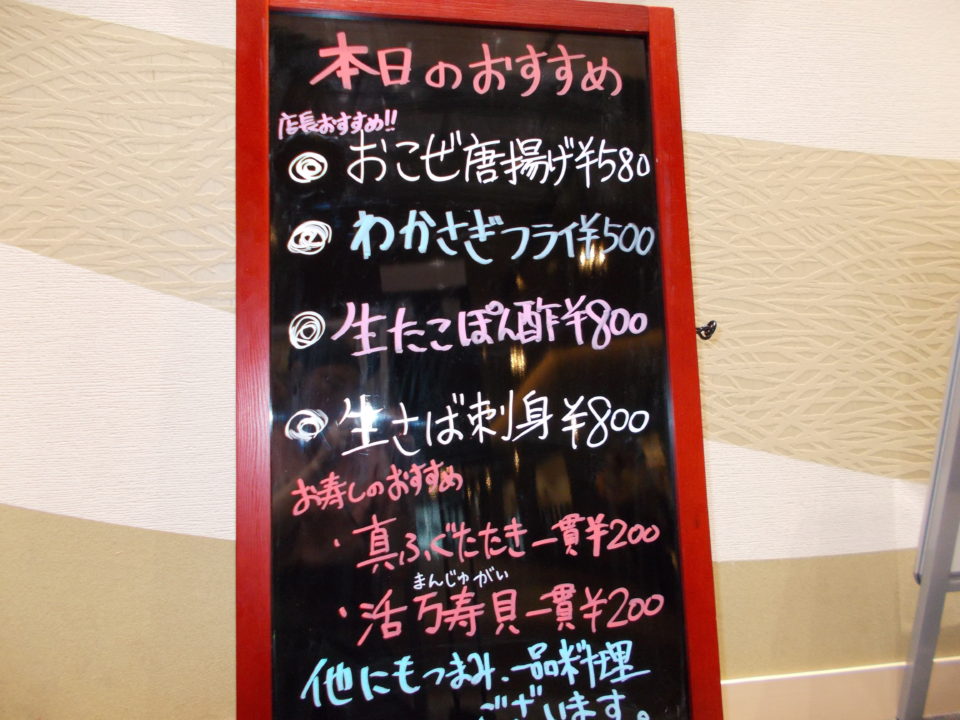 本日のおすすめ
店長おすすめ!!
おこぜ唐揚げ¥580
わかさぎフライ¥500
生たこぽん酢¥800
生さば刺身¥800
お寿しのおすすめ
・真ふぐたたき一貫¥200
まんじゅがい
・活万寿貝一貫¥200
他にもつまみ、一品料理
ございます。